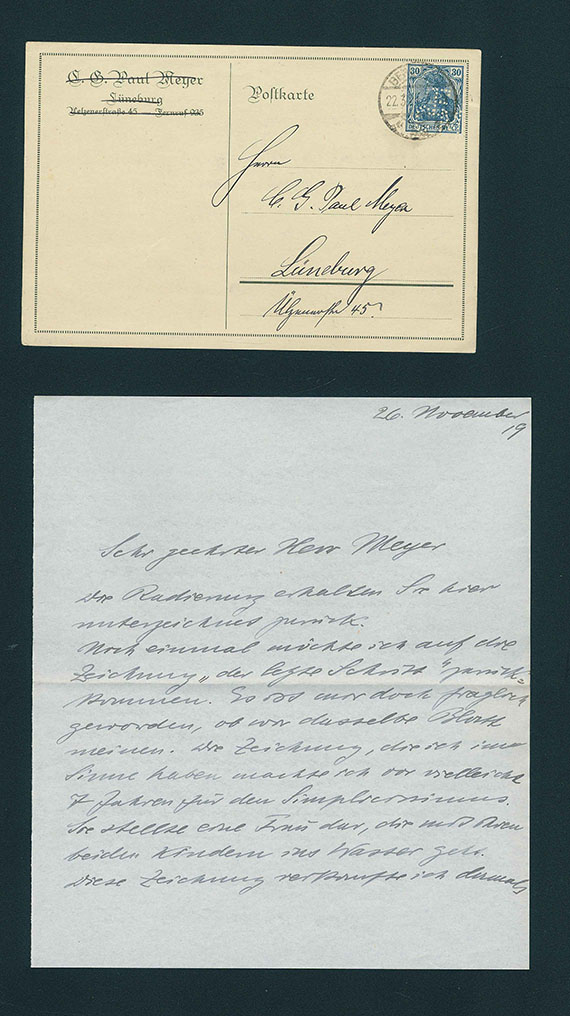 C. G. Paul Meyer
Lüneburg
Uelzenerstraße 45 Fernruf 935
Postkarte
30 30
22.3
Herrn
C. G. Paul Meyer
Lüneburg
Ülzenerstr 45.
26. November
19
Sehr geehrter Herr Meyer
Die Radierung erhalten Sie hier
unterzeichnet zurück.
Noch einmal möchte ich auf die
Zeichnung „der letzte Schritt" zurück=
kommen. Es ist mir doch fraglich
geworden, ob wir dasselbe Blatt
meinen. Die Zeichnung, die ich im
Sinne haben machte ich vor vielleicht
7 Jahren für den Simplicissimus.
Sie stellte eine Frau dar, die mit ihren
beiden Kindern ins Wasser geht.
Diese Zeichnung verkaufte ich damals